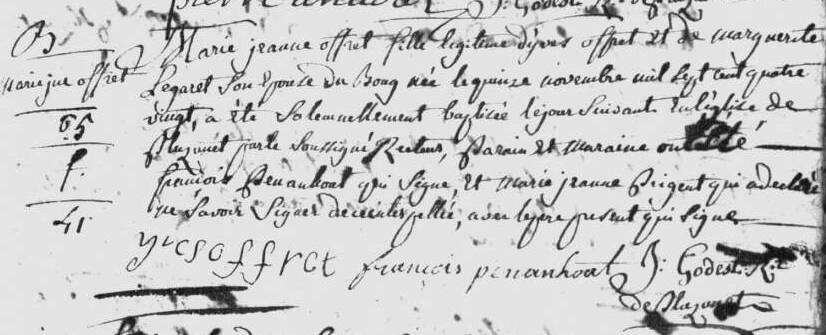 J: Godest
B
marie jne offret
65
f.
41.
Marie jeanne offret fille legitime d'yves offret et de marguerite
Legaret son Epouse du Bourg née le quinze novembre mil sept cent quatre
vingt, a été solemnellement baptisée le jour suivant en l'église de
par le soussigné Recteur, Parain et maraine ont été
françois Penanhoat qui signe, et marie jeanne Prigent qui a declaré
ne savoir signer de ce interpellée, avec le pere present qui signe
yves offret françois penanhoat J: Godest R.